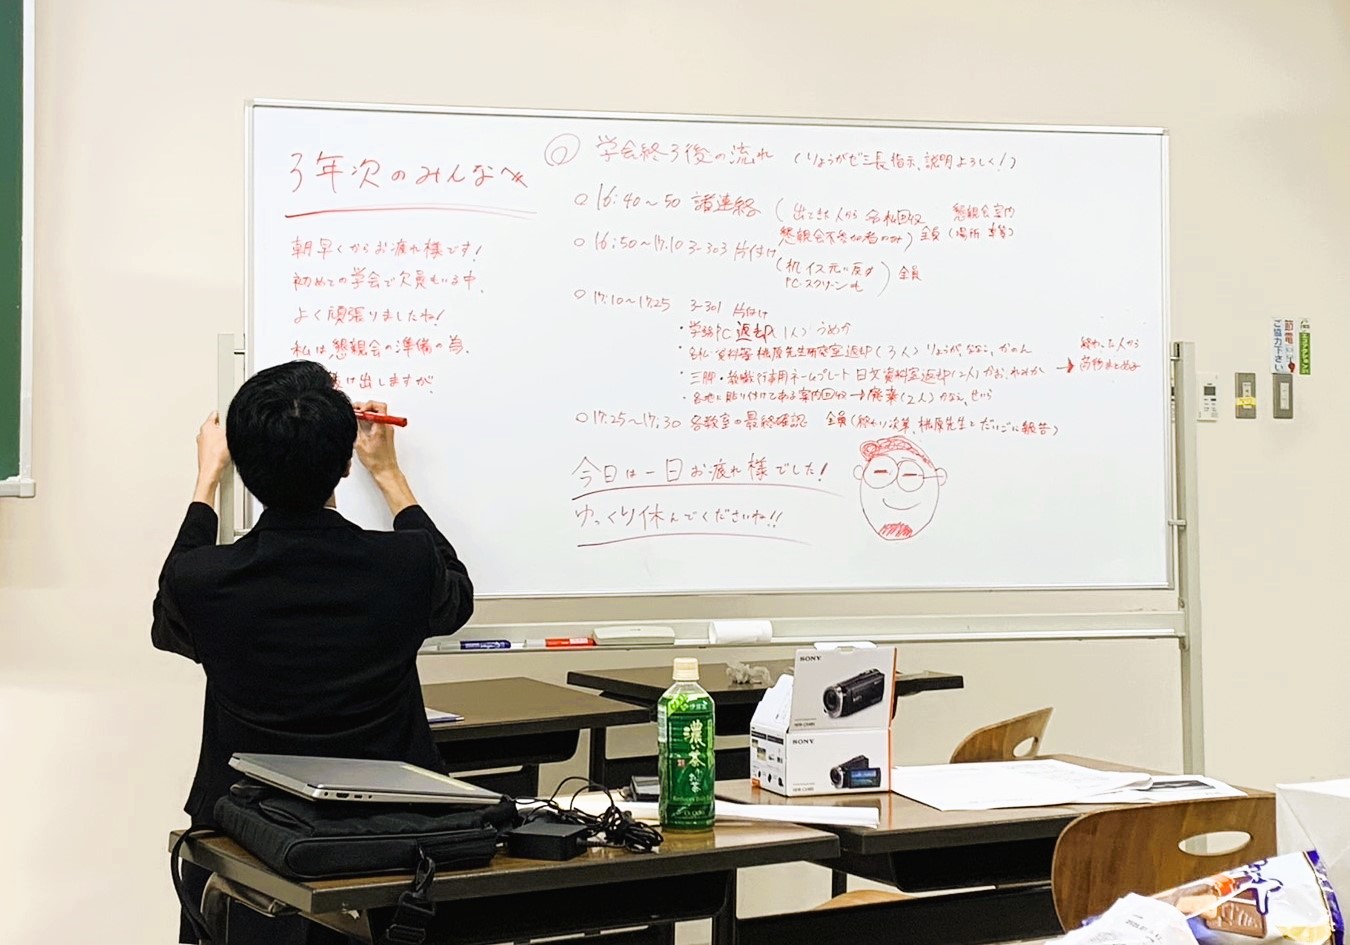 3年次のみんなへ
朝早くからお疲れ様です!
初めての学会で欠員もいる中、
よく頑張りましたね!
私は懇親会の準備の為、
け出しますが
学会終了後の流れ (りょうがゼミ長指示、説明よろしく!)
○16:40〜50 諸連絡 (出てきた人から名札回収 懇親会案内
懇親会不参加者のみ) 全員 (場所
○16:50〜17:10 3-303 片付け
(机イス元に戻す
PC・スクリーンも) 全員
○17:10〜17:25 3-301 片付け
・学務PC返却(1人) うめか
・名札・資料等 桃原先生研究室返却(3人) りょうが、ななこ、かのん
・三脚・教職行事用ネームプレート 日文資料室返却(2人) かお、れみか
・各地に貼り付けてある案内回収→廃棄(2人) かなえ、せいら
→ 終わった人から
荷物まとめる
○17:25〜17:30 各教室の最終確認 全員(終わり次第、桃原先生とだいごに報告)
今日は一日お疲れ様でした!
ゆっくり休んでくださいね!!
節電
ご協力下さい
SONY
SONY
伊藤園
濃い茶
お〜いお茶